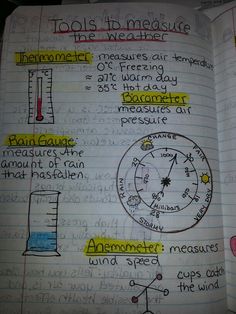 Tools to measure
the weather
Thermometer: measures air temperature
≈ 0°C Freezing
≈ 27°C Warm day
≈ 35°C Hot day
Barometer
measures air
pressure
Rain Gauge:
measures the
amount of rain
that has fallen.
CHANGE
FAIR
VERY DRY
STORMY
RAIN
Millibars
Anemometer: measures
wind speed
cups catch
the wind